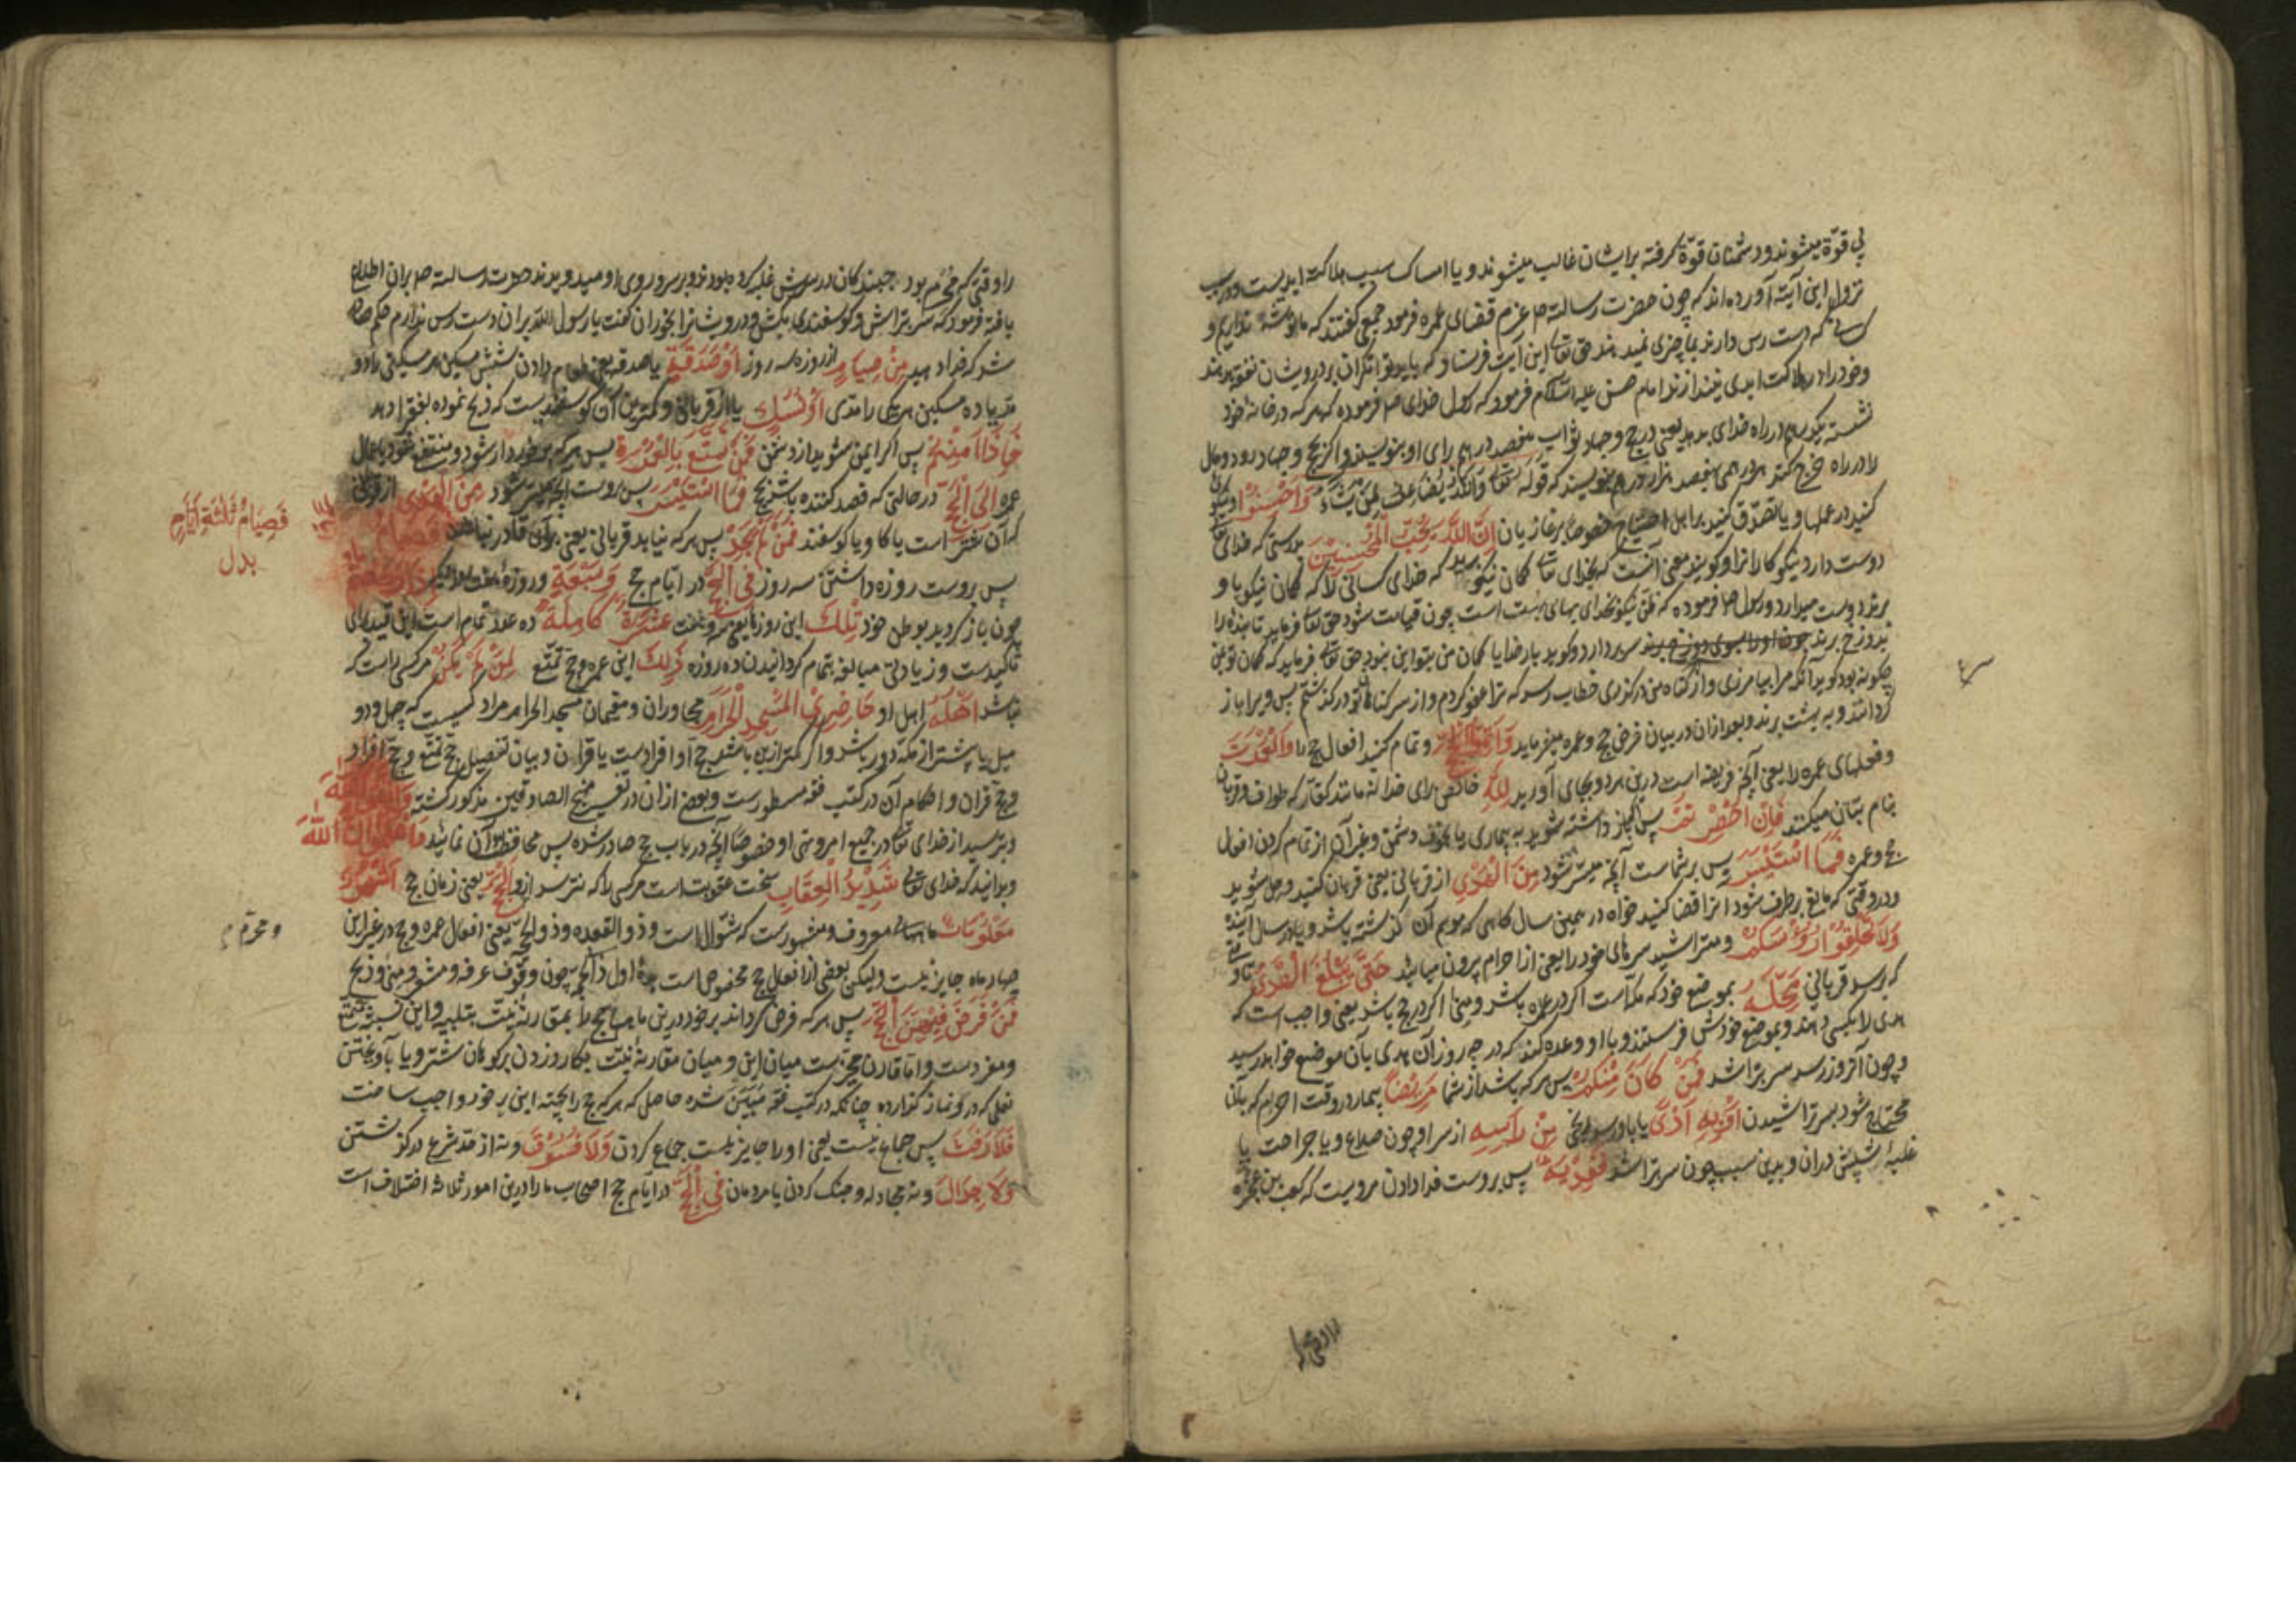 بی قوّة میشوند و دشمنان قوّة گرفته بر ایشان غالب میشوند و یا امساک سبب هلاکت ابدیست و در سبب
نزول این آیة آورده‌اند که چون حضرت رسالت ص عزم قضای عمره فرمود جمعی گفتند که ما توشه نداریم و
کسانی که دست رس دارند بما چیزی نمیدهند حق تعالی این آیت فرستاد که باید توانگران بر درویشان نفقه کنند
و خود را در هلاکت ابدی نیندازند امام حسن علیه السلام فرمود که رسول خدای ص فرموده که هر که در خانهٔ خود
نشسته یکدرم در راه خدای بدهد یعنی در حج و جهاد ثواب هفصد درهم برای او بنویسند و اگر بحج و جهاد رود و مال
را در راه خرج کند هر درهمی هفصد هزار درهم بنویسند که قوله تعالی وَاللّٰهُ یُضَاعِفُ لِمَنْ یَشَاءُ وَاَحْسِنُوا و نیکوئی
کنید در عملها و یا تصدّق کنید بر اهل احتیاج خصوصا بر غازیان اِنَّ اللّٰهَ یُحِبُّ الْمُحْسِنِیْنَ بدرستی که خدای تعالی
دوست دارد نیکوکارانرا و گویند معنی آنست که بخدای تعالی گمان نیکو برید که خدای کسانی را که گمان نیکو باو
برند دوست میدارد و رسول ص فرموده که ظنّ نیکو بخدای بهای بهشت است چون قیامت شود حق تعالی فرماید تا بنده را
بدوزخ برند چون او را بسوی دوزخ برند سر بردارد و گوید بار خدایا گمان من بتو این نبود حق تعالی فرماید که گمان تو بمن
چگونه بود گوید آنکه مرا بیامرزی و از گناه من درگذری خطاب رسد که ترا عفو کردم و از سر گناهان تو درگذشتم پس ویرا باز
گردانند و به بهشت برند و بعد ازان در بیان فرض حج و عمره میفرماید وَاَتِمُّوا الْحَجَّ و تمام کنید افعال حج را وَالْعُمْرَةَ
و فعلهای عمره را یعنی آنچه فریضه است درین هر دو بجای آورید لِلّٰهِ خالص برای خدا نه مانند کفّار که طواف و قربان
بنام بتان میکنند فَاِنْ اُحْصِرْتُمْ پس اگر باز داشته شوید به بیماری یا بخوف دشمن و غیر آن از تمام کردن افعال
حج و عمره فَمَا اسْتَیْسَرَ پس بر شماست آنچه میسّر شود مِنَ الْهَدْیِ از قربانی یعنی قربان کنید و محل شوید
و در وقتی که مانع برطرف شود آنرا قضا کنید خواه در همین سال گاهی که موسم آن نگذشته باشد و یا در سال آینده
وَلَا تَحْلِقُوْا رُؤُسَکُمْ و متراشید سرهای خود را یعنی از احرام بیرون میائید حَتّٰی یَبْلُغَ الْهَدْیُ تا وقتی
که برسد قربانی مَحِلَّهُ بموضع خود که مکّه است اگر در عمره باشد و منا اگر در حج باشد یعنی واجب است که
هدی را بکسی دهند و بموضع خودش فرستند و با او وعده کنند که در چه روز آن هدی بآن موضع خواهد رسید
و چون آنروز رسد سر بتراشد فَمَنْ کَانَ مِنْکُمْ پس هر که باشد از شما مَرِیْضاً بیمار در وقت احرام که بآن
محتاج شود بسر تراشیدن اَوْ بِهِ اَذًی یا باو رسد رنجی مِنْ رَاْسِهِ از سر او چون صداع و یا جراحت یا
غلبهٔ شپش دران و بدین سبب چون سر بتراشد فَفِدْیَةٌ پس بروست فدا دادن مرویست که کعب بن عجره
را وقتی که
را وقتی که محرم بود جنبندگان در سرش غلبه کرده بودند و بر سر و روی او میدویدند حضرت رسالت ص بران اطلاع
یافته فرمود که سر بتراش و گوسفندی بکش و درویشانرا بخوران گفت یا رسول الله بران دست رس ندارم حکم صادر
شد که فدا دهید مِنْ صِیَامٍ از روزه سه روز اَوْ صَدَقَةٍ یا صدقه یعنی طعام دادن شش مسکین هر مسکینی را دو
مد یا ده مسکین هر یکی را مدی اَوْ نُسُكٍ یا از قربانی و کمترین آن گوسفندیست که ذبح نموده بفقرا دهد
فَاِذَا اَمِنْتُمْ پس اگر ایمن شوید از دشمن فَمَنْ تَمَتَّعَ بِالْعُمْرَةِ پس هر که برخوردار شود و منتفع شود باعمال
عمره اِلَی الْحَجِّ در حالتی که قصد کننده باشد بحج فَمَا اسْتَیْسَرَ پس بروست آنچه میسّر شود مِنَ الْهَدْیِ از قربانی
که آن شتر است یا گاو یا گوسفند فَمَنْ لَمْ یَجِدْ پس هر که نیابد قربانی یعنی بران قادر نباشد فَصِیَامُ
فَصِیَامُ ثَلٰثَةِ اَیَّامٍ
بدل
پس بروست روزه داشتن سه روز فِی الْحَجِّ در ایّام حج وَسَبْعَةٍ و روزهٔ هفت روز دیگر اِذَا رَجَعْتُمْ
چون باز گردید بوطن خود تِلْكَ این روزها یعنی سه و هفت عَشَرَةٌ كَامِلَةٌ ده عدد تمام است این قید برای
تاکیدست و زیادتی مبالغه بتمام گردانیدن ده روزه ذٰلِكَ این عمره و حج تمتّع لِمَنْ لَمْ یَكُنْ مر کسی راست که
نباشد اَهْلُهُ اهل او حَاضِرِی الْمَسْجِدِ الْحَرَامِ مجاوران و مقیمان مسجد الحرام مراد کسیست که چهل و دو
میل یا پیشتر از مکّه دور باشد و اگر کمتر ازین باشد حج او افرادست یا قران و بیان تفصیل حج تمتّع و حج افراد
و حج قران و احکام آن در کتب فقه مسطورست و بعضی ازان در تفسیر منهج الصادقین مذکور گشته وَاتَّقُوا اللّٰهَ
و بترسید از خدای تعالی در جمیع امر و نهی او خصوصًا آنچه در باب حج صادر شده پس محافظت آن نمائید وَاعْلَمُوا اَنَّ اللّٰهَ
و بدانید که خدای تعالی شَدِیْدُ الْعِقَابِ سخت عقوبت است مر کسی را که نترسد ازو اَلْحَجُّ یعنی زمان حج اَشْهُرٌ
مَعْلُوْمَاتٌ ماههای معروف و مشهورست که شوّال است و ذو القعده و ذو الحجّه یعنی افعال عمره و حج در غیر این
و محرّم م
چهار ماه جایز نیست ولیکن بعضی از افعال حج مخصوص است بدههٔ اول ذی الحجّه چون وقوف عرفه و مشعر و منی و ذبح
فَمَنْ فَرَضَ فِیْهِنَّ الْحَجَّ پس هر که فرض گرداند بر خود درین ماهها حج را بمقارنهٔ نیّت بتلبیه و این نسبت بتمتّع
و مفردست و اما قارن مخیّرست میان این و میان مقارنهٔ نیّت بکارد زدن بر کوهان شتر و یا بآویختن
نعلی که درو نماز گذارده چنانکه در کتب فقه مبیّن شده حاصل که هر که حج را بجهة این بر خود واجب ساخت
فَلَا رَفَثَ پس جماع نیست یعنی او را جایز نیست جماع کردن وَلَا فُسُوْقَ و نه از حد شرع درگذشتن
وَلَا جِدَالَ و نه مجادله و جنگ کردن با مردمان فِی الْحَجِّ در ایّام حج اصحاب ما را درین امور ثلاثه اختلاف است